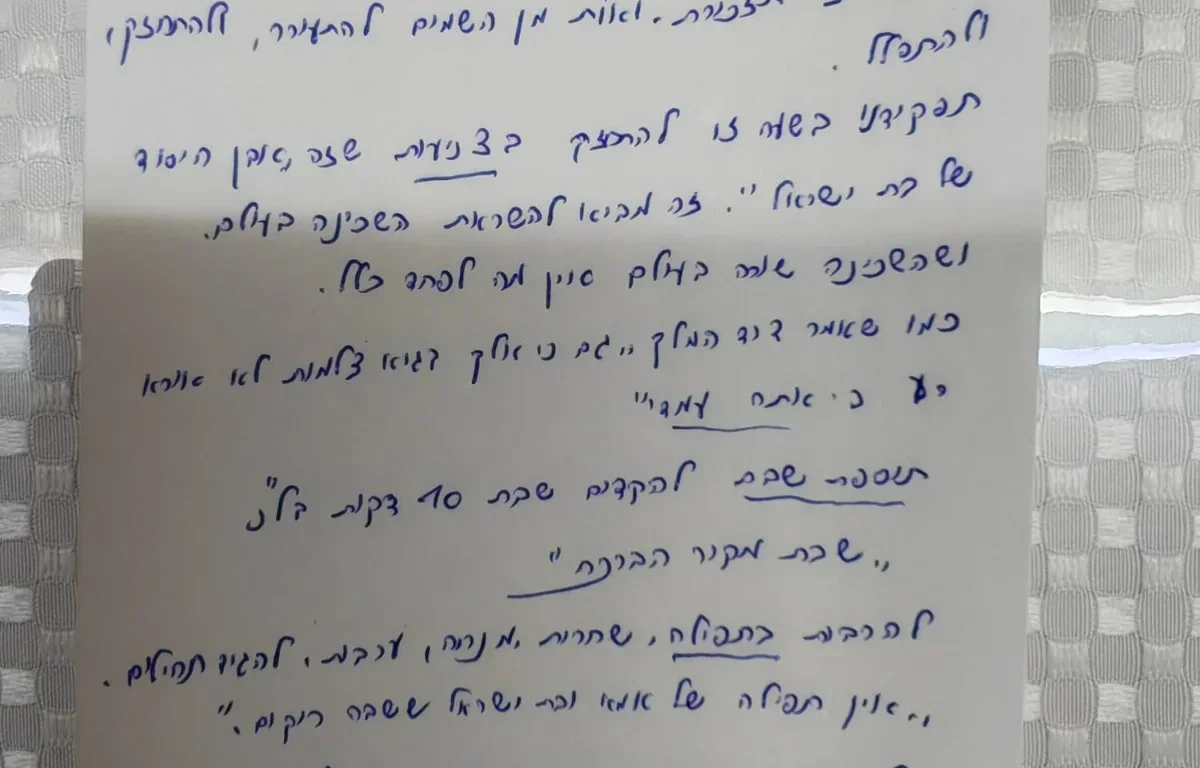 תזכורת. ואות מן השמים להתעורר, ולהתחזק,
ולהתפלל.
תפקידנו בשעה זו להתחזק בצניעות שזה „אבן היסוד
של בת ישראל". זה מביא להשראת השכינה בעולם.
ושהשכינה שורה בעולם אין מה לפחד כלל.
כמו שאמר דוד המלך „גם כי אלך בגיא צלמות לא אירא
רע כי אתה עמדי"
תוספת שבת להקדים שבת 10 דקות בל"נ
„שבת מקור הברכה"
להרבות בתפילה, שחרית, מנחה, ערבית, להגיד תהילים.
„אין תפילה של אמא ובת ישראל ששבה ריקם."